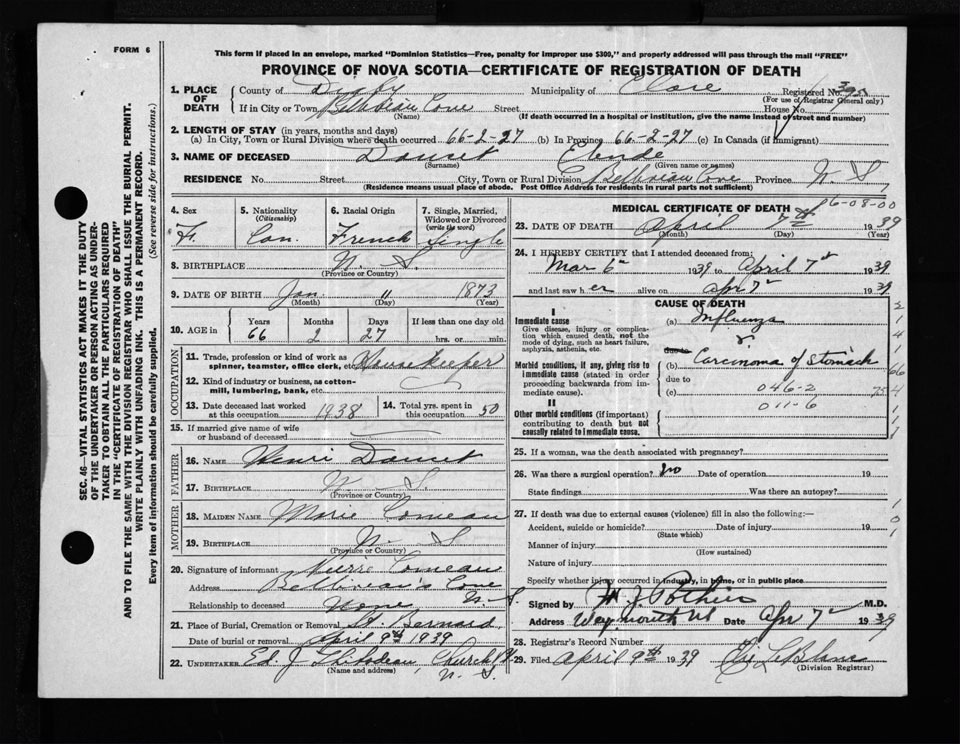 FORM 6
This form if placed in an envelope, marked "Dominion Statistics—Free, penalty for improper use $300," and properly addressed will pass through the mail "FREE"
PROVINCE OF NOVA SCOTIA—CERTIFICATE OF REGISTRATION OF DEATH
SEC. 46—VITAL STATISTICS ACT MAKES IT THE DUTY
OF THE UNDERTAKER OR PERSON ACTING AS UNDER-
TAKER TO OBTAIN ALL THE PARTICULARS REQUIRED
IN THE "CERTIFICATE OF REGISTRATION OF DEATH"
AND TO FILE THE SAME WITH THE DIVISION REGISTRAR WHO SHALL ISSUE THE BURIAL PERMIT.
WRITE PLAINLY WITH UNFADING INK. THIS IS A PERMANENT RECORD.
Every item of information should be carefully supplied. (See reverse side for instructions.)
1. PLACE OF DEATH County of Digby Municipality of Clare Registered No.
(For use of Registrar General only)
If in City or Town Belliveau Cove Street House No.
(Name) (If death occurred in a hospital or institution, give the name instead of street and number)
2. LENGTH OF STAY (in years, months and days)
(a) In City, Town or Rural Division where death occurred 66-2-27 (b) In Province 66-2-27 (c) In Canada (if immigrant)
3. NAME OF DECEASED Doucet
(Surname) (Given name or names)
RESIDENCE No. Street City, Town or Rural Division Belliveau Cove Province N. S.
(Residence means usual place of abode. Post Office Address for residents in rural parts not sufficient)
4. Sex F.
5. Nationality (Citizenship) Can.
6. Racial Origin French
7. Single, Married, Widowed or Divorced (write the word) Single
8. BIRTHPLACE N. S.
(Province or Country)
9. DATE OF BIRTH Jan. 11 1873
(Month) (Day) (Year)
10. AGE in Years Months Days If less than one day old
66 2 27 hrs. or min.
OCCUPATION
11. Trade, profession or kind of work as spinner, teamster, office clerk, etc. Housekeeper
12. Kind of industry or business, as cotton-mill, lumbering, bank, etc.
13. Date deceased last worked at this occupation 1938 14. Total yrs. spent in this occupation 50
15. If married give name of wife or husband of deceased
FATHER
16. NAME Henri Doucet
17. BIRTHPLACE N. S.
(Province or Country)
MOTHER
18. MAIDEN NAME Marie Comeau
19. BIRTHPLACE N. S
(Province or Country)
20. Signature of informant Comeau
Address Belliveau's Cove N. S.
Relationship to deceased None
21. Place of Burial, Cremation or Removal St. Bernard
Date of burial or removal April 9th 1939
22. UNDERTAKER Ed. J Thibodeau Church Pt. N. S.
(Name and address)
MEDICAL CERTIFICATE OF DEATH 96-08-00
23. DATE OF DEATH April 7th 1939
(Month) (Day) (Year)
24. I HEREBY CERTIFY that I attended deceased from:
Mar 6th 1939 to April 7th 1939
and last saw her alive on Apr 7th 1939
CAUSE OF DEATH
I
Immediate cause (a) Influenza
Give disease, injury or complication which caused death, not the mode of dying, such as heart failure, asphyxia, asthenia, etc.
due to
Morbid conditions, if any, giving rise to immediate cause (stated in order proceeding backwards from immediate cause).
(b) Carcinoma of Stomach
due to
(c) 046-2
II
011-6
Other morbid conditions (if important) contributing to death but not causally related to immediate cause.
25. If a woman, was the death associated with pregnancy?
26. Was there a surgical operation? No Date of operation 19
State findings Was there an autopsy?
27. If death was due to external causes (violence) fill in also the following:—
Accident, suicide or homicide? Date of injury 19
(State which)
Manner of injury
(How sustained)
Nature of injury
Specify whether injury occurred in industry, in home, or in public place
Signed by Pothier M.D.
Address Weymouth NS Date Apr 7th 1939
28. Registrar's Record Number
29. Filed April 9th 1939 LeBlanc
(Division Registrar)